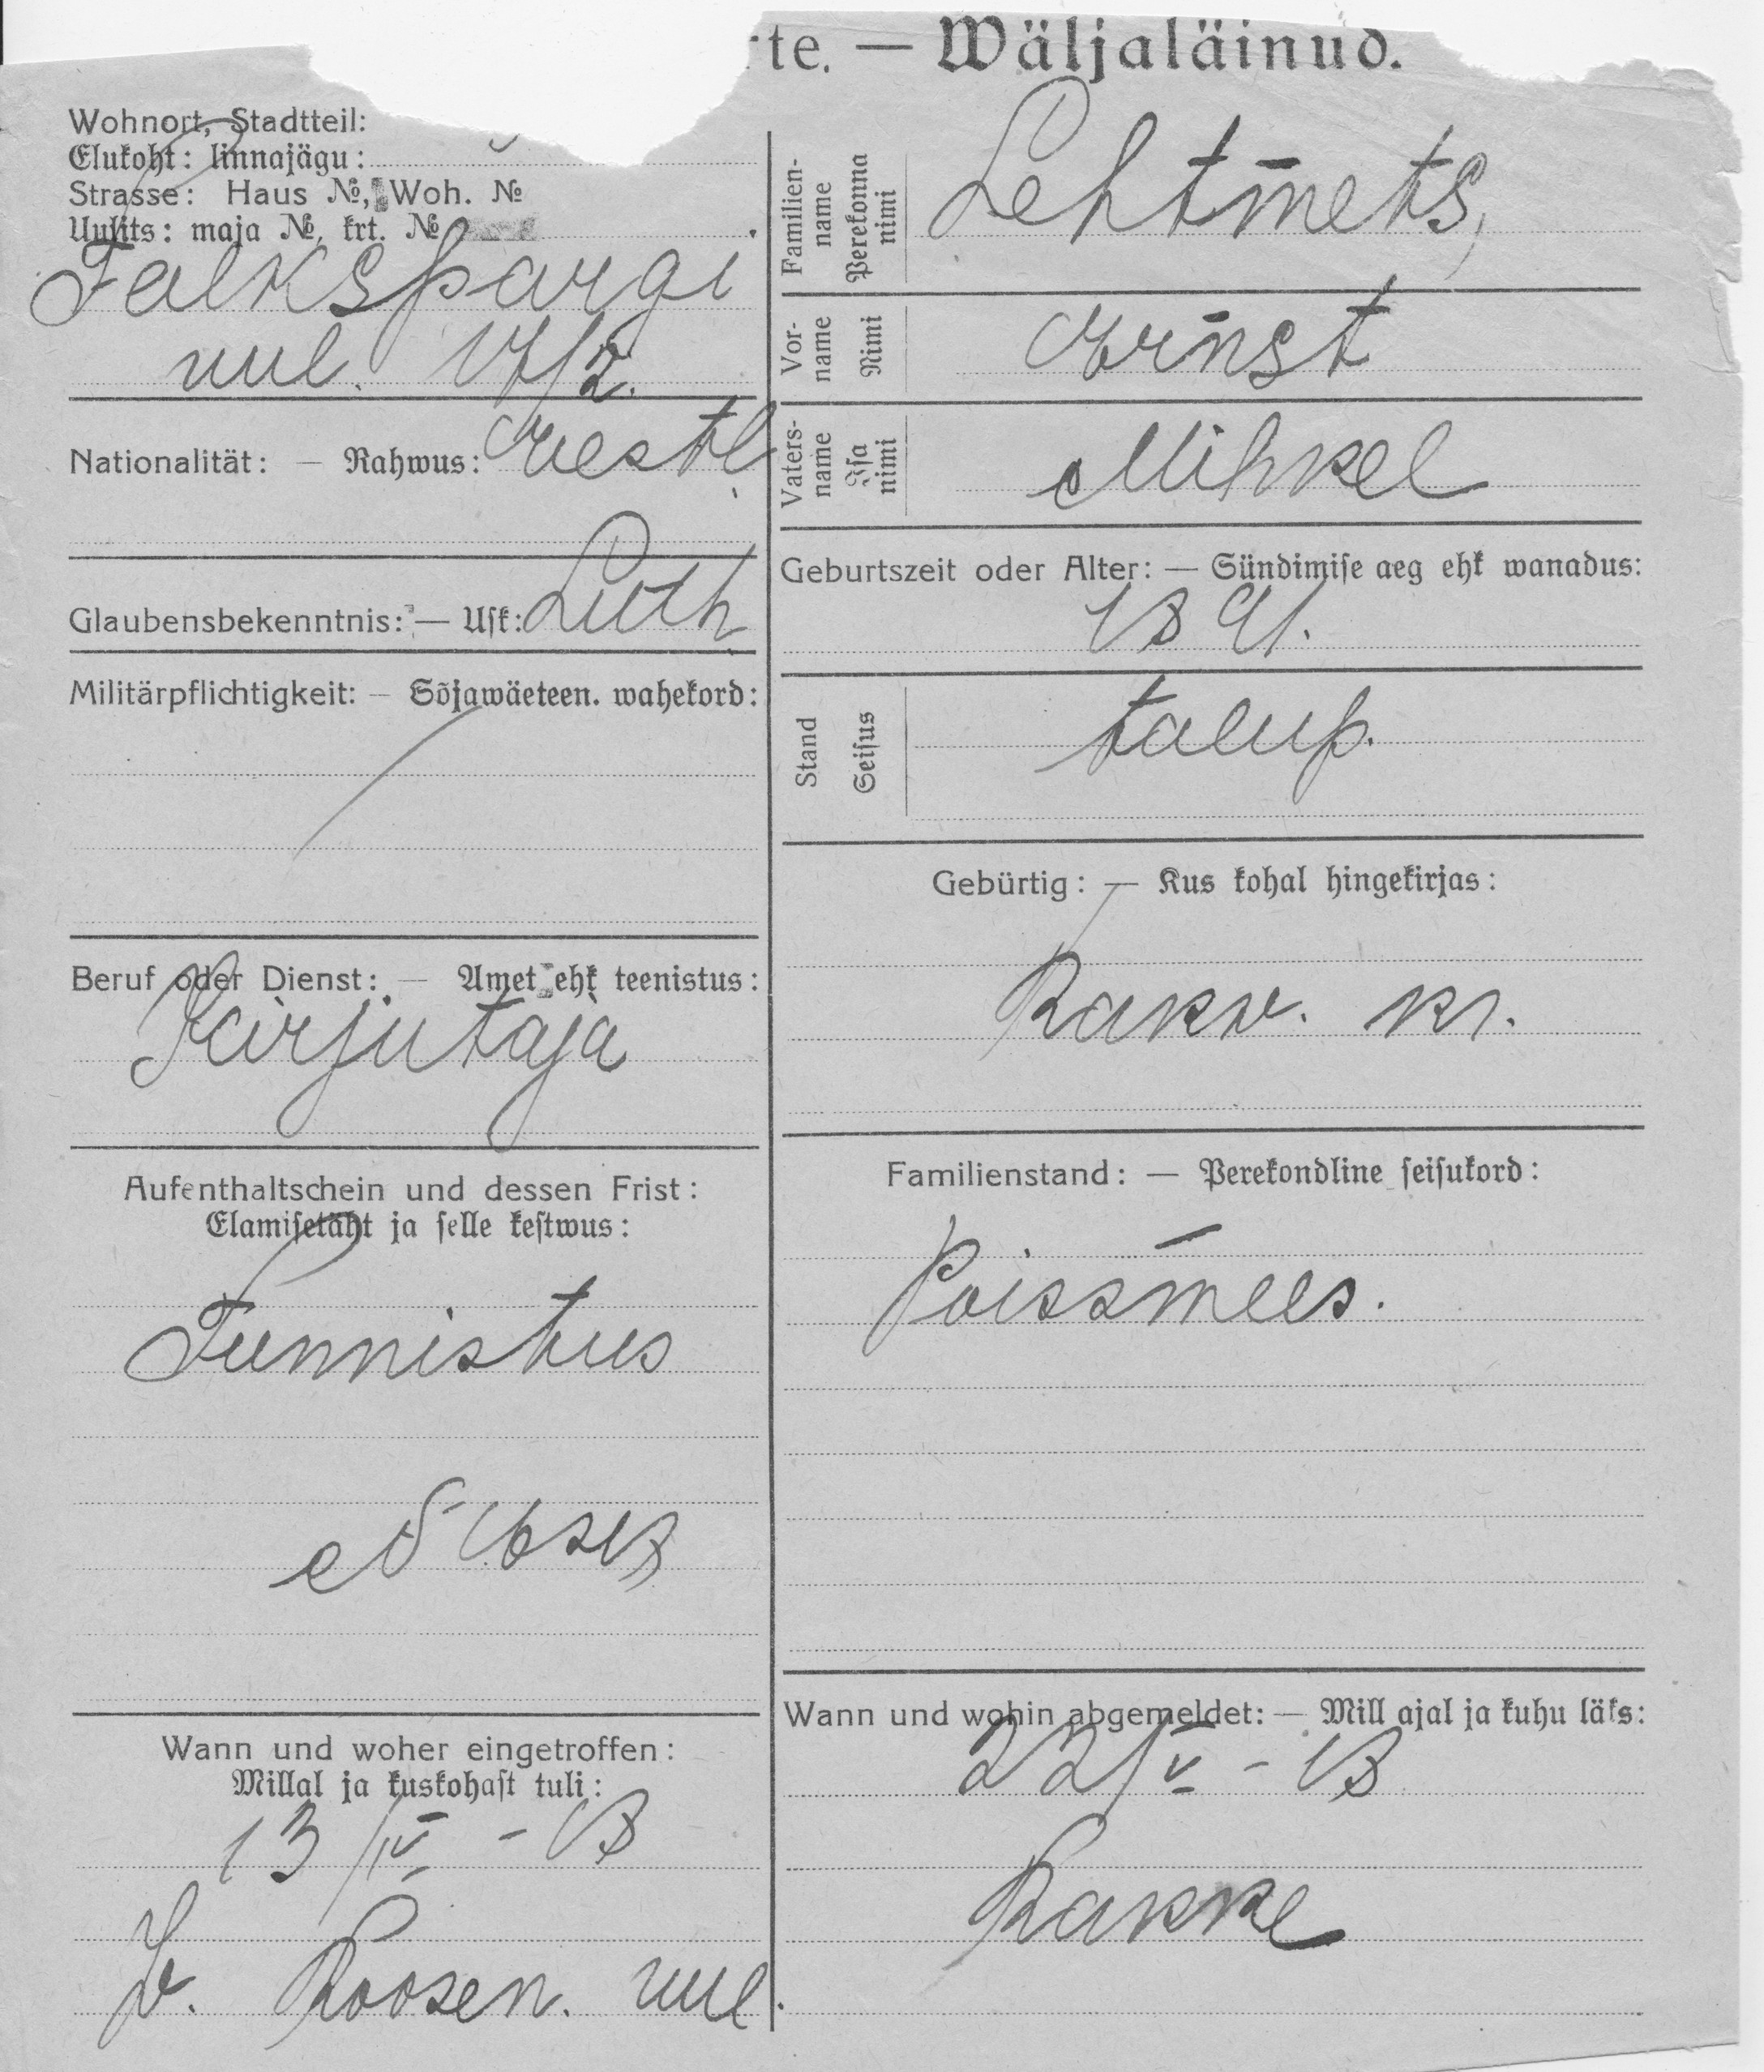 te. — Wäljaläinud.
Wohnort, Stadtteil:
Elukoht: linnajägu:
Strasse: Haus №, Woh. №
Uulits: maja №, krt. №
Falkspargi
uul. 17/2.
Nationalität: — Rahwus: Eestl.
Glaubensbekenntnis: — Usk: Luth
Militärpflichtigkeit: — Sõjawäeteen. wahekord:
Beruf oder Dienst: — Amet ehk teenistus:
Kirjutaja
Aufenthaltschein und dessen Frist:
Elamisetäht ja selle kestwus:
Tunnistus
Wann und woher eingetroffen:
Millal ja kuskohast tuli:
13/IV - 18
Roosen. uul.
Familien-
name
Perekonna
nimi
Lehtmets,
Vor-
name
Nimi
Ernst
Vaters-
name
Isa
nimi
Mihkel
Geburtszeit oder Alter: — Sündimise aeg ehk wanadus:
1891.
Stand
Seisus
talup.
Gebürtig: — Kus kohal hingekirjas:
Rakv. kr.
Familienstand: — Perekondline seisukord:
Poissmees.
Wann und wohin abgemeldet: — Mill ajal ja kuhu läks:
22/V - 18
Rakke